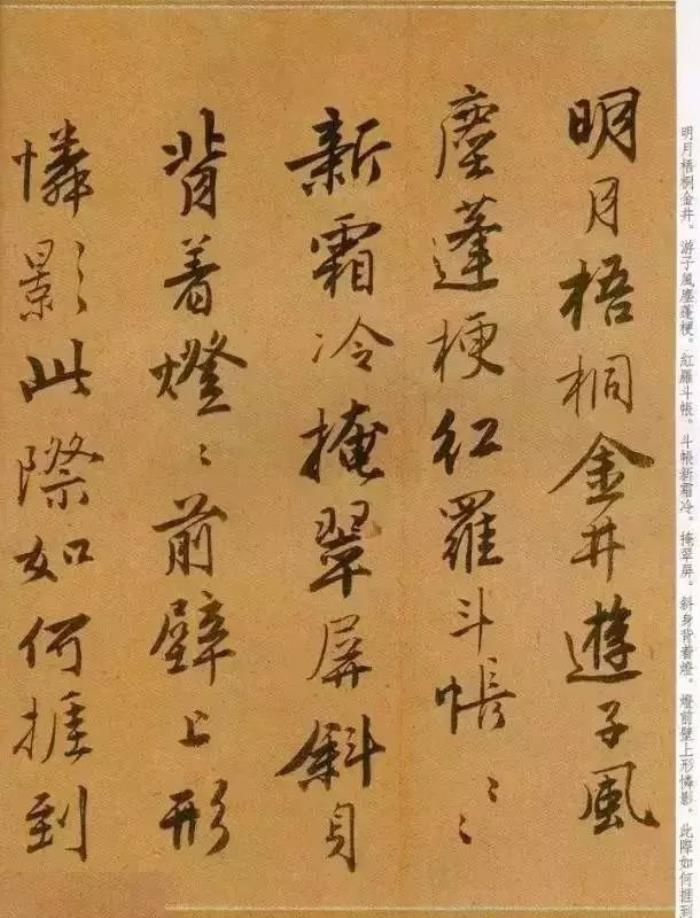 明月梧桐金井遊子風
塵蓬梗紅羅斗帳〻
新霜冷掩翠屏斜身
背着燈〻前壁上形
憐影此際如何捱到
明月梧桐金井。游子風塵蓬梗。紅羅斗帳。斗帳新霜冷。掩翠屏。斜身背着燈。燈前壁上形憐影。此際如何捱到